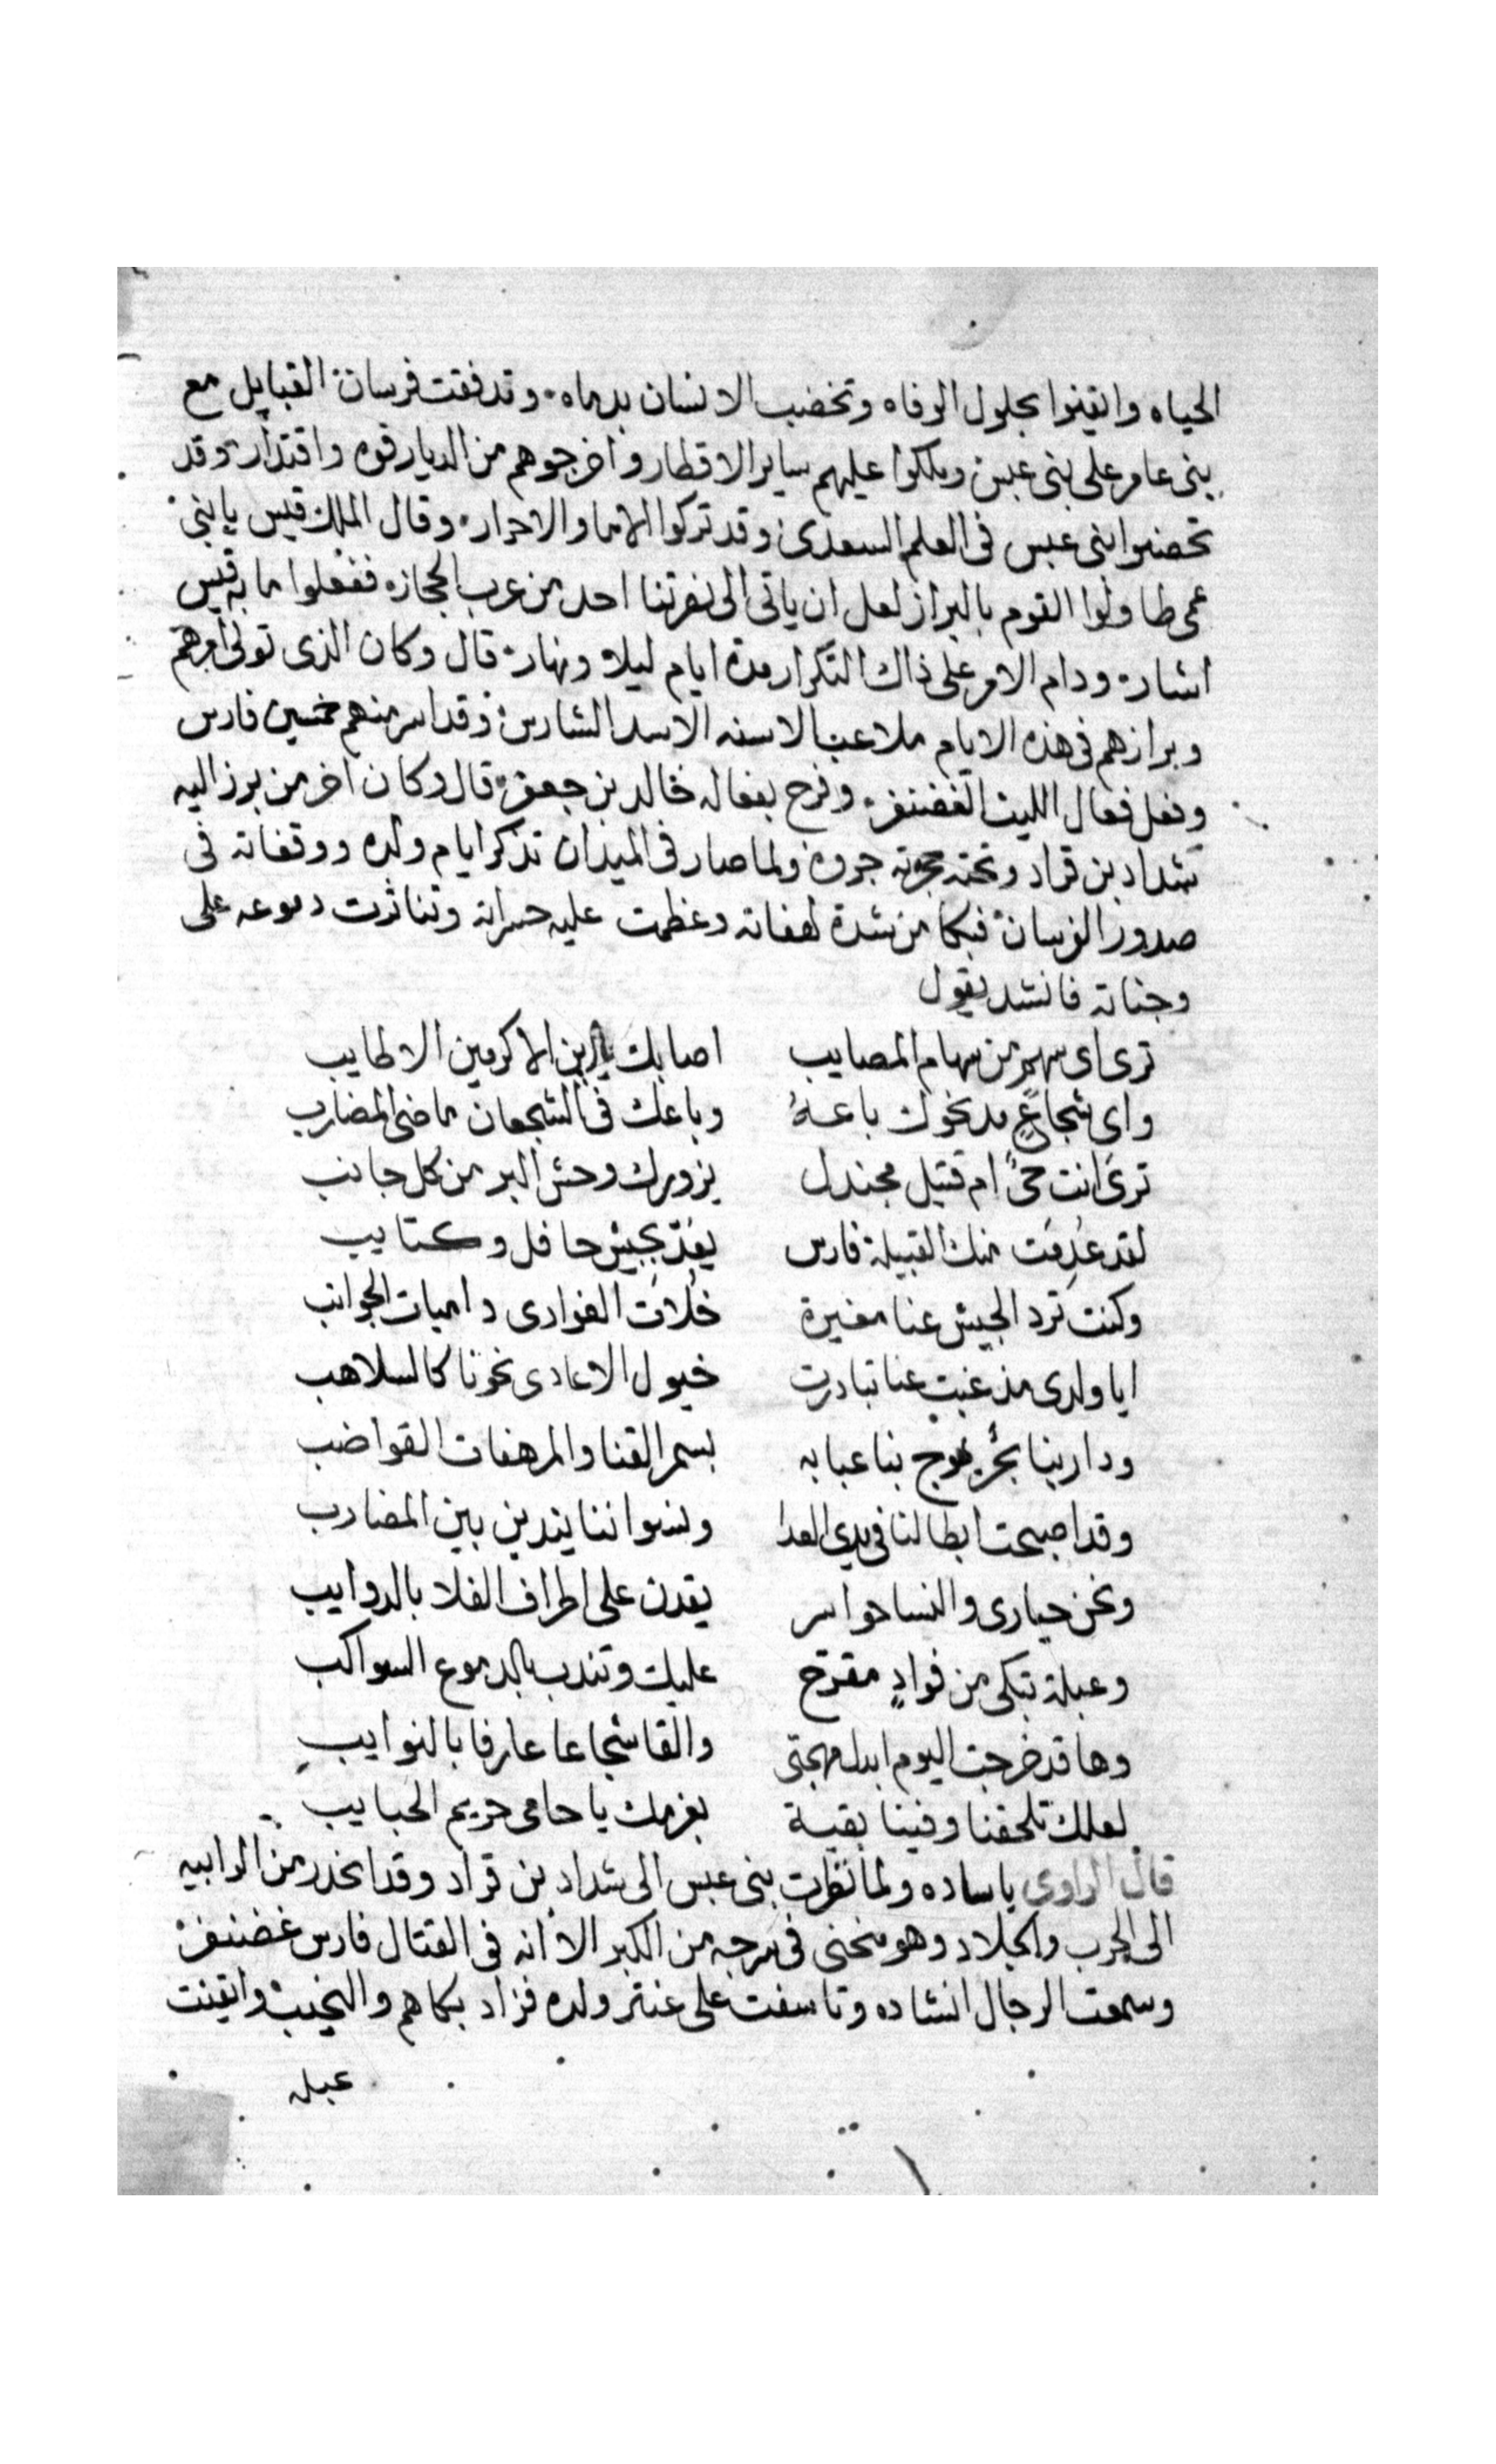 الحياه وايقنوا بحلول الوفاه وتخضب الانسان بدماه وتدفقت فرسان القبايل مع
بنى عامر على بنى عبس وملكوا عليهم ساير الاقطار واخرجوهم من الديار قوه واقتدار وقد
تحصنوا بنى عبس فى العلم السعدى وقد تركوا الاما والاحرار وقال الملك قيس يا بنى
عمى طاولوا القوم بالبراز لعل ان ياتى الى نصرتنا احد من عرب الحجاز ففعلوا ما به قيس
اشار ودام الامر على ذاك التكرار مدة ايام ليلا ونهار قال وكان الذى تولى امرهم
وبرازهم فى هذه الايام ملاعب الاسنه الاسد الشارس وقد اسر منهم خمسين فارس
وفعل فعال الليث الغضنفر وفرح بفعاله خالد بن جعفر قال وكان اخر من برز اليه
شداد بن قراد وتحته حجرته جروه ولما صار فى الميدان تذكر ايام ولده ووقفاته فى
صدور الفرسان فبكا من شدة لهفاته وعظمت عليه حسراته وتناثرت دموعه على
وجناته فانشد يقول
ترى اى سهم من سهام المصايب اصابك يا ابن الاكرمين الاطايب
واى شجاع مد نحوك باعهُ وباعك فى الشجعان ماضى المضارب
ترى انت حىٌ ام قتيل مجندل يزورك وحش البر من كل جانب
لقد عُدِمَت منك القبيلة فارس يُعدّ بجيش حافل وكتايب
وكنت ترد الجيش عنا مغيرة خلات الفوارى داميات الجوانب
ايا ولدى مذ غبت عنا تبادرت خيول الاعادى نحونا كالسلاهب
ودار بنا بحرٌ يموج بنا عبابه بسمر القنا والمرهفات القواضب
وقد اصبحت ابطالنا فى يدى العدا ونسواننا يندبن بين المضارب
ونحن حيارى والنسا حواسر يقدن على اطراف الفلا بالدوايب
وعبلة تبكى من فوادٍ مقرّح عليك وتندب بالدموع السواكب
وها قد خرجت اليوم ابدل مهجتى والقا شجاعا عارفا بالنوايبِ
لعلك تلحقنا وفينا بقية بعزمك يا حامى حريم الحبايب
قال الراوى يا ساده ولما نظرت بنى عبس الى شداد بن قراد وقد انحدر من الرابيه
الى الحرب والجلاد وهو منحنى فى سرجه من الكبر الا انه فى القتال فارس غضنفر
وسمعت الرجال انشاده وتاسفت على عنتر ولده فزاد بكاهم والنحيب وايقنت
عبله